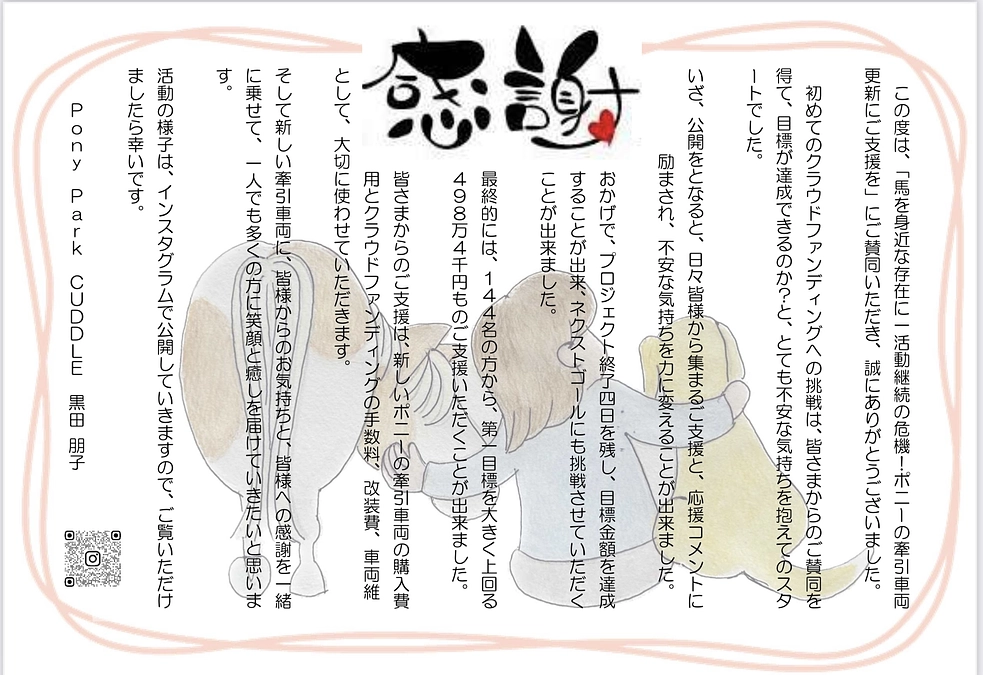 感謝
この度は、「馬を身近な存在に―活動継続の危機！ポニーの牽引車両
更新にご支援を」にご賛同いただき、誠にありがとうございました。
初めてのクラウドファンディングへの挑戦は、皆さまからのご賛同を
得て、目標が達成できるのか？と、とても不安な気持ちを抱えてのスタ
ートでした。
いざ、公開をとなると、日々皆様から集まるご支援と、応援コメントに
励まされ、不安な気持ちを力に変えることが出来ました。
おかげで、プロジェクト終了四日を残し、目標金額を達成
することが出来、ネクストゴールにも挑戦させていただく
ことが出来ました。
最終的には、１４４名の方から、第一目標を大きく上回る
４９８万４千円ものご支援いただくことが出来ました。
皆さまからのご支援は、新しいポニーの牽引車両の購入費
用とクラウドファンディングの手数料、改装費、車両維
として、大切に使わせていただきます。
そして新しい牽引車両に、皆様からのお気持ちと、皆様への感謝を一緒
に乗せて、一人でも多くの方に笑顔と癒しを届けていきたいと思いま
す。
活動の様子は、インスタグラムで公開していきますので、ご覧いただけ
ましたら幸いです。
Ｐｏｎｙ　Ｐａｒｋ　ＣＵＤＤＬＥ　黒田　朋子